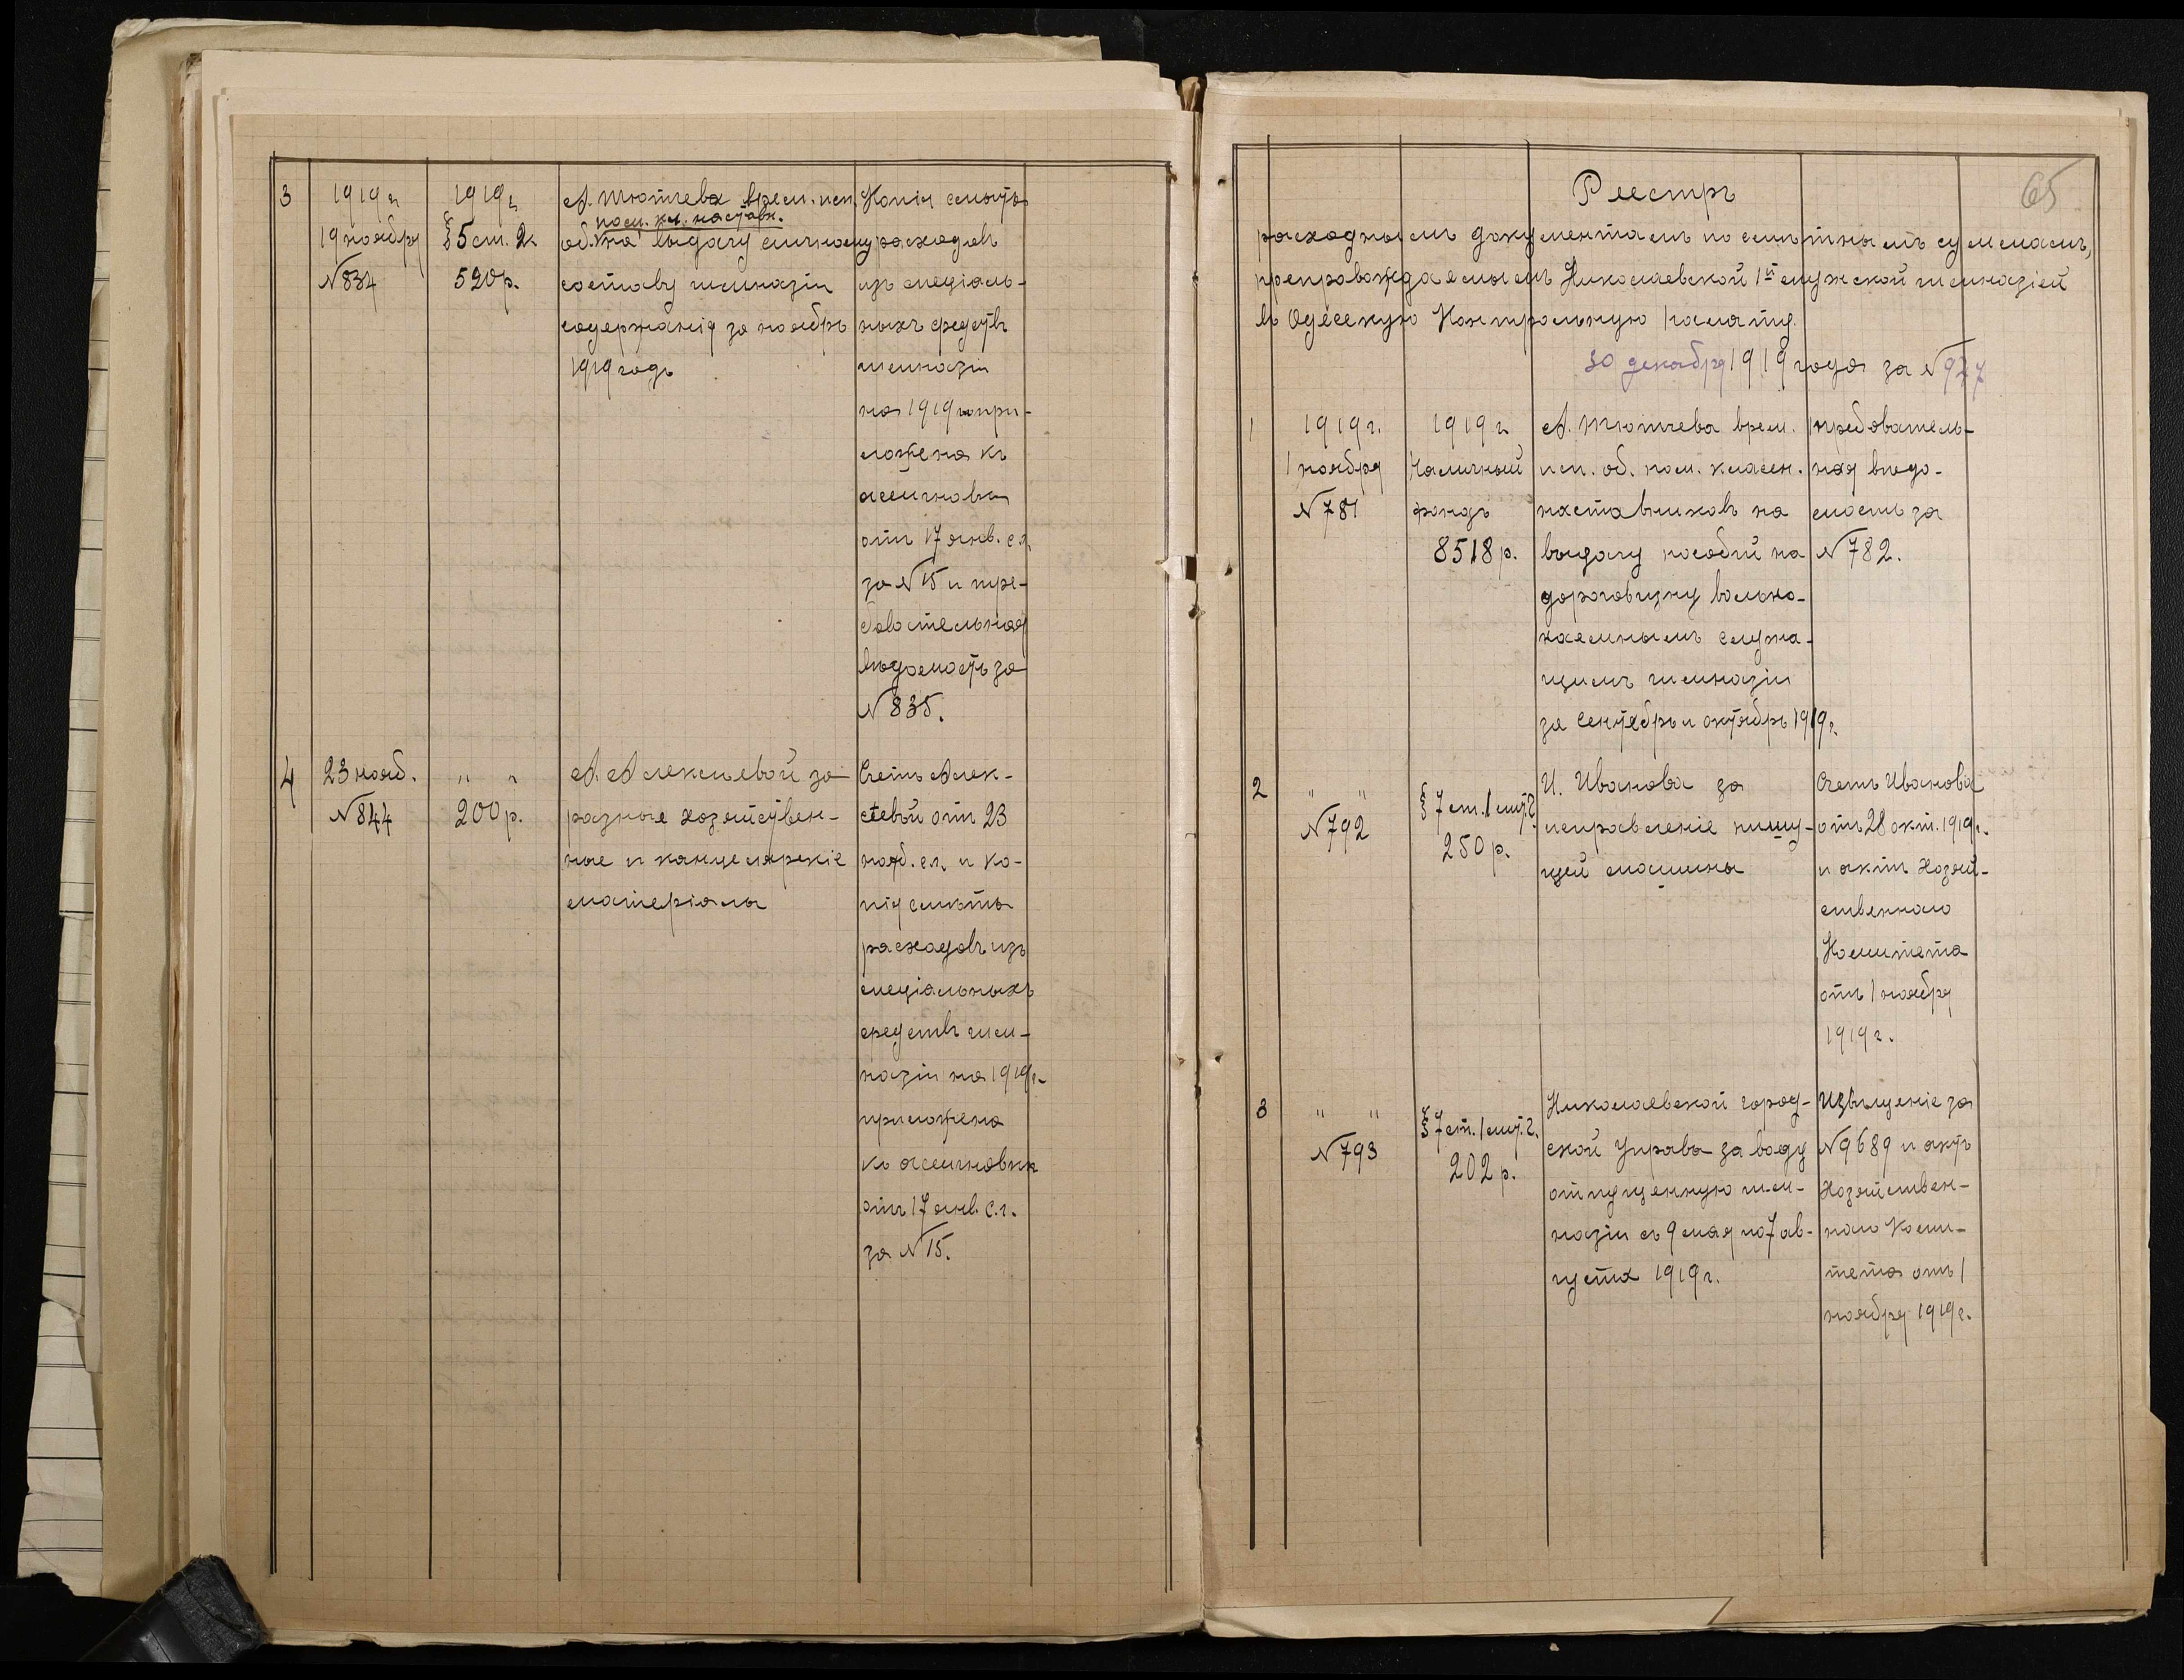 3
1919 г.
19 ноября
№ 834
1919 г.
§ 5 ст. 2
520 р.
А. Тютчева врем. исп.
пом. кл. наставн.
об. на выдачу личному
составу гимназіи
содержанія за ноябрь
1919 годъ
Копія смѣты
расходовъ
изъ спеціаль-
ныхъ средствъ
гимназіи
на 1919 г. при-
ложена къ
ассигновкѣ
отъ 17 янв. с.г.
за № 15 и тре-
бовательная
вѣдомость за
№ 835.
4
23 нояб.
№ 844
" "
200 р.
А. Алексѣевой за
разные хозяйствен-
ные и канцелярскіе
матеріалы
Счетъ Алек-
сѣевой отъ 23
нояб. с.г. и ко-
пія смѣты
расходовъ изъ
спеціальныхъ
средствъ гим-
назіи на 1919 г.
приложена
къ ассигновкѣ
отъ 17 янв. с.г.
за № 15.
65
Реестръ
расходнымъ документамъ по смѣтнымъ суммамъ,
препровождаемымъ Николаевской 1й мужской гимназіей
въ Одесскую Контрольную палату
30 декабря 1919 года за № 977
1
1919 г.
1 ноября
№ 781
1919 г.
Наличный
фондъ
8518 р.
А. Тютчева врем.
исп. об. пом. классн.
наставниковъ на
выдачу пособій на
дороговизну вольно-
наемнымъ служа-
щимъ гимназіи
за сентябрь и октябрь 1919 г.
требователь-
ная вѣдо-
мость за
№ 782.
2
" "
№ 792
§ 7 ст. 1 смѣт. г.
250 р.
И. Иванова за
исправленіе пишу-
щей машины
Счетъ Иванова
отъ 28 окт. 1919 г.
и актъ Хозяй-
ственнаго
Комитета
отъ 1 ноября
1919 г.
3
" "
№ 793
§ 7 ст. 1 смѣт. г.
202 р.
Николаевской город-
ской Управѣ за воду
отпущенную гим-
назіи съ 9 мая по 7 ав-
густа 1919 г.
Извѣщеніе за
№ 9689 и актъ
Хозяйствен-
наго Коми-
тета отъ 1
ноября 1919 г.